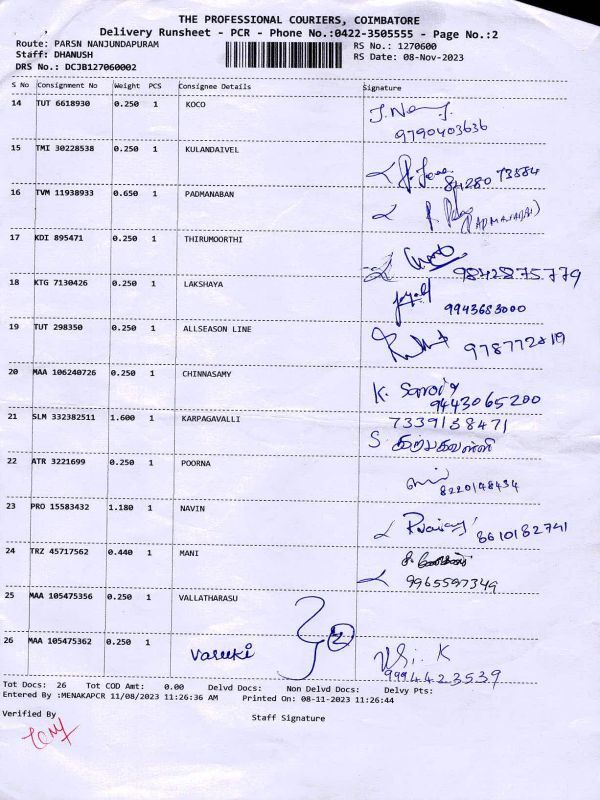 THE PROFESSIONAL COURIERS, COIMBATORE
Delivery Runsheet - PCR - Phone No.:0422-3505555 - Page No.:2
Route: PARSN NANJUNDAPURAM RS No.: 1270600
Staff: DHANUSH RS Date: 08-Nov-2023
DRS No.: DCJB127060002
S No Consignment No Weight PCS Consignee Details Signature
14 TUT 6618930 0.250 1 KOCO
9790403636
15 TMI 30228538 0.250 1 KULANDAIVEL
84280 73584
16 TVM 11938933 0.650 1 PADMANABAN
17 KDI 895471 0.250 1 THIRUMOORTHI
9842875779
18 KTG 7130426 0.250 1 LAKSHAYA
9943683000
19 TUT 298350 0.250 1 ALLSEASON LINE
978772819
20 MAA 106240726 0.250 1 CHINNASAMY
9443065200
21 SLM 332382511 1.600 1 KARPAGAVALLI 7339138471
S கற்பகவள்ளி
22 ATR 3221699 0.250 1 POORNA
8220148434
23 PRO 15583432 1.180 1 NAVIN
8610182741
24 TRZ 45717562 0.440 1 MANI
9965597349
25 MAA 105475356 0.250 1 VALLATHARASU
26 MAA 105475362 0.250 1 Vasuki 2
9994423539
Tot Docs: 26 Tot COD Amt: 0.00 Delvd Docs: Non Delvd Docs: Delvy Pts:
Entered By :MENAKAPCR 11/08/2023 11:26:36 AM Printed On: 08-11-2023 11:26:44
Verified By Staff Signature